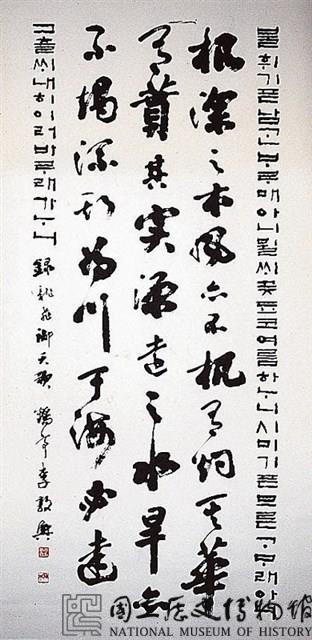 불휘기픈남ᄀᆞᆫᄇᆞᄅᆞ매아니뮐씨곶됴코여름하ᄂᆞ니ᄉᆡ미기픈므른ᄀᆞᄆᆞ래아니
根深之木風亦不扤有灼其華
有蕡其實源遠之水旱亦
不竭流斯為川于海必達
그츨씨내히이러바ᄅᆞ래가ᄂᆞ니 錄龍飛御天歌 鶴亭李敦興
國立歷史博物館
NATIONAL MUSEUM OF HISTORY